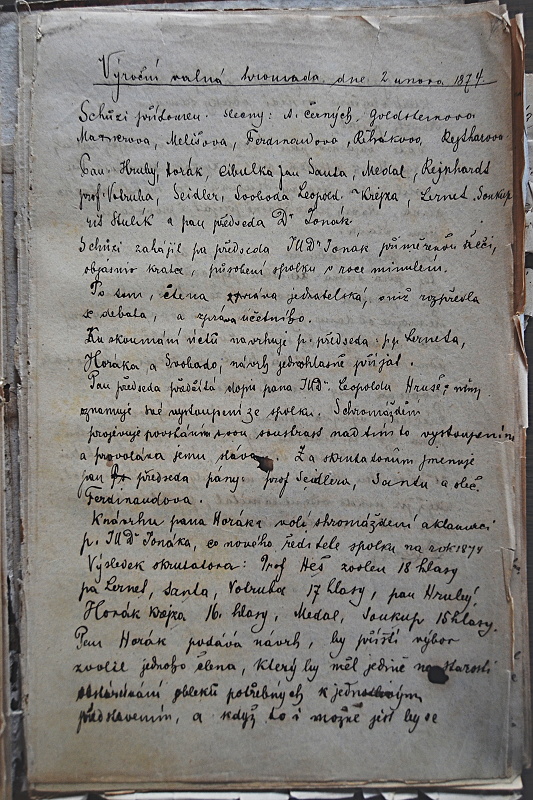 Výroční valná hromada dne 2 února 1874.
Schůzi přítomen. slečny: A. černých, Goldsteinova
Matierova, Melišova, Ferdinandova, Rejtharova
Pan. Hrubý, Horák, Cibulka Jan Santa, Medal, Rejnhardt
prof. Votruba, Seidler, Svoboda Leopold. Krejza, Lernet, Soukup
Stulík a pan předseda Dr Jonák
Schůzi zahájil pa předseda JUDr Jonák přiměřenou řečí,
objasniv krátce, působení spolku v roce minulém.
Po tom, čtena zpráva jednatelská, o niž rozpředla
se debata, a zpráva účetního.
Ku skoumání účtů navrhuje p. předseda: pp. Lerneta,
Horáka a Svobodo, návrh jednohlasně přijat.
Pan předseda předčítá dopis pana JUDr. Leopolda Hruše, nímž
oznamuje své vystoupení ze spolku. Schromáždění
projevuje povstáním svou soustrast nad tímto vystoupením
a provolává jemu sláva. Za skrutatorům jmenuje
pan předseda pány: prof Seidlera, Santu a sleč.
Ferdinandova.
K návrhu pana Horáka volí shromáždění aklamací
p. JUDr Jonáka, co nového ředitele spolku na rok 1874
Výsledek skrutatora: Prof Heš zvolen 18 hlasy
pá Lernet, Santa, Votruba 17 hlasy, pan Hrubý,
Horák Krejza 16. hlasy, Medal, Soukup 15 hlasy.
Pan Horák podává návrh, by příští výbor
zvolil jednoho člena, který by měl jedině na starosti
obstarávání obleků potřebných k jednotlivým
představením, a když to i možné jest by se